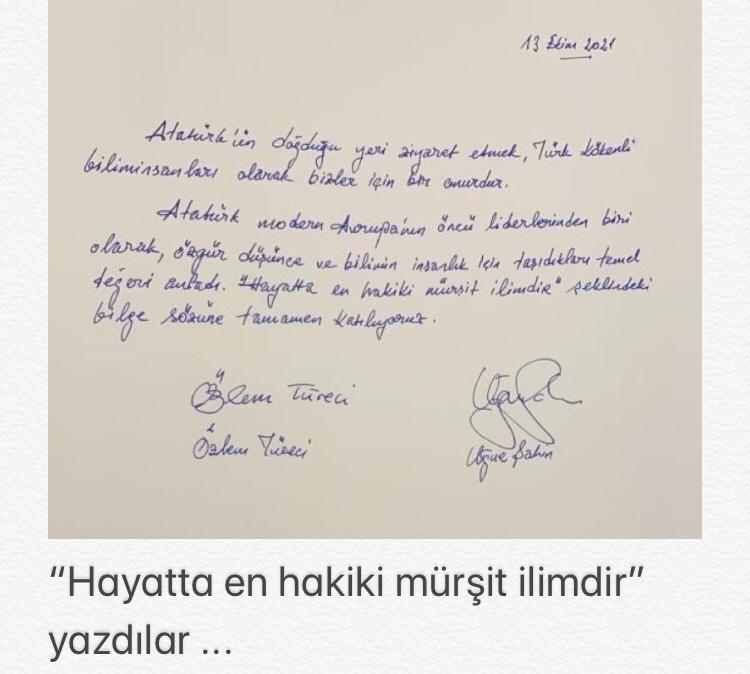 13 Ekim 2021
Atatürk'ün doğduğu yeri ziyaret etmek, Türk kökenli
biliminsanları olarak bizler için bir onurdur.
Atatürk modern Avrupa'nın öncü liderlerinden biri
olarak, özgür düşünce ve bilimin insanlık için taşıdıkları temel
değeri anladı. "Hayatta en hakiki mürşit ilimdir" şeklindeki
bilge sözüne tamamen katılıyoruz.
Özlem Türeci
Özlem Türeci
Uğur Şahin
"Hayatta en hakiki mürşit ilimdir"
yazdılar ...